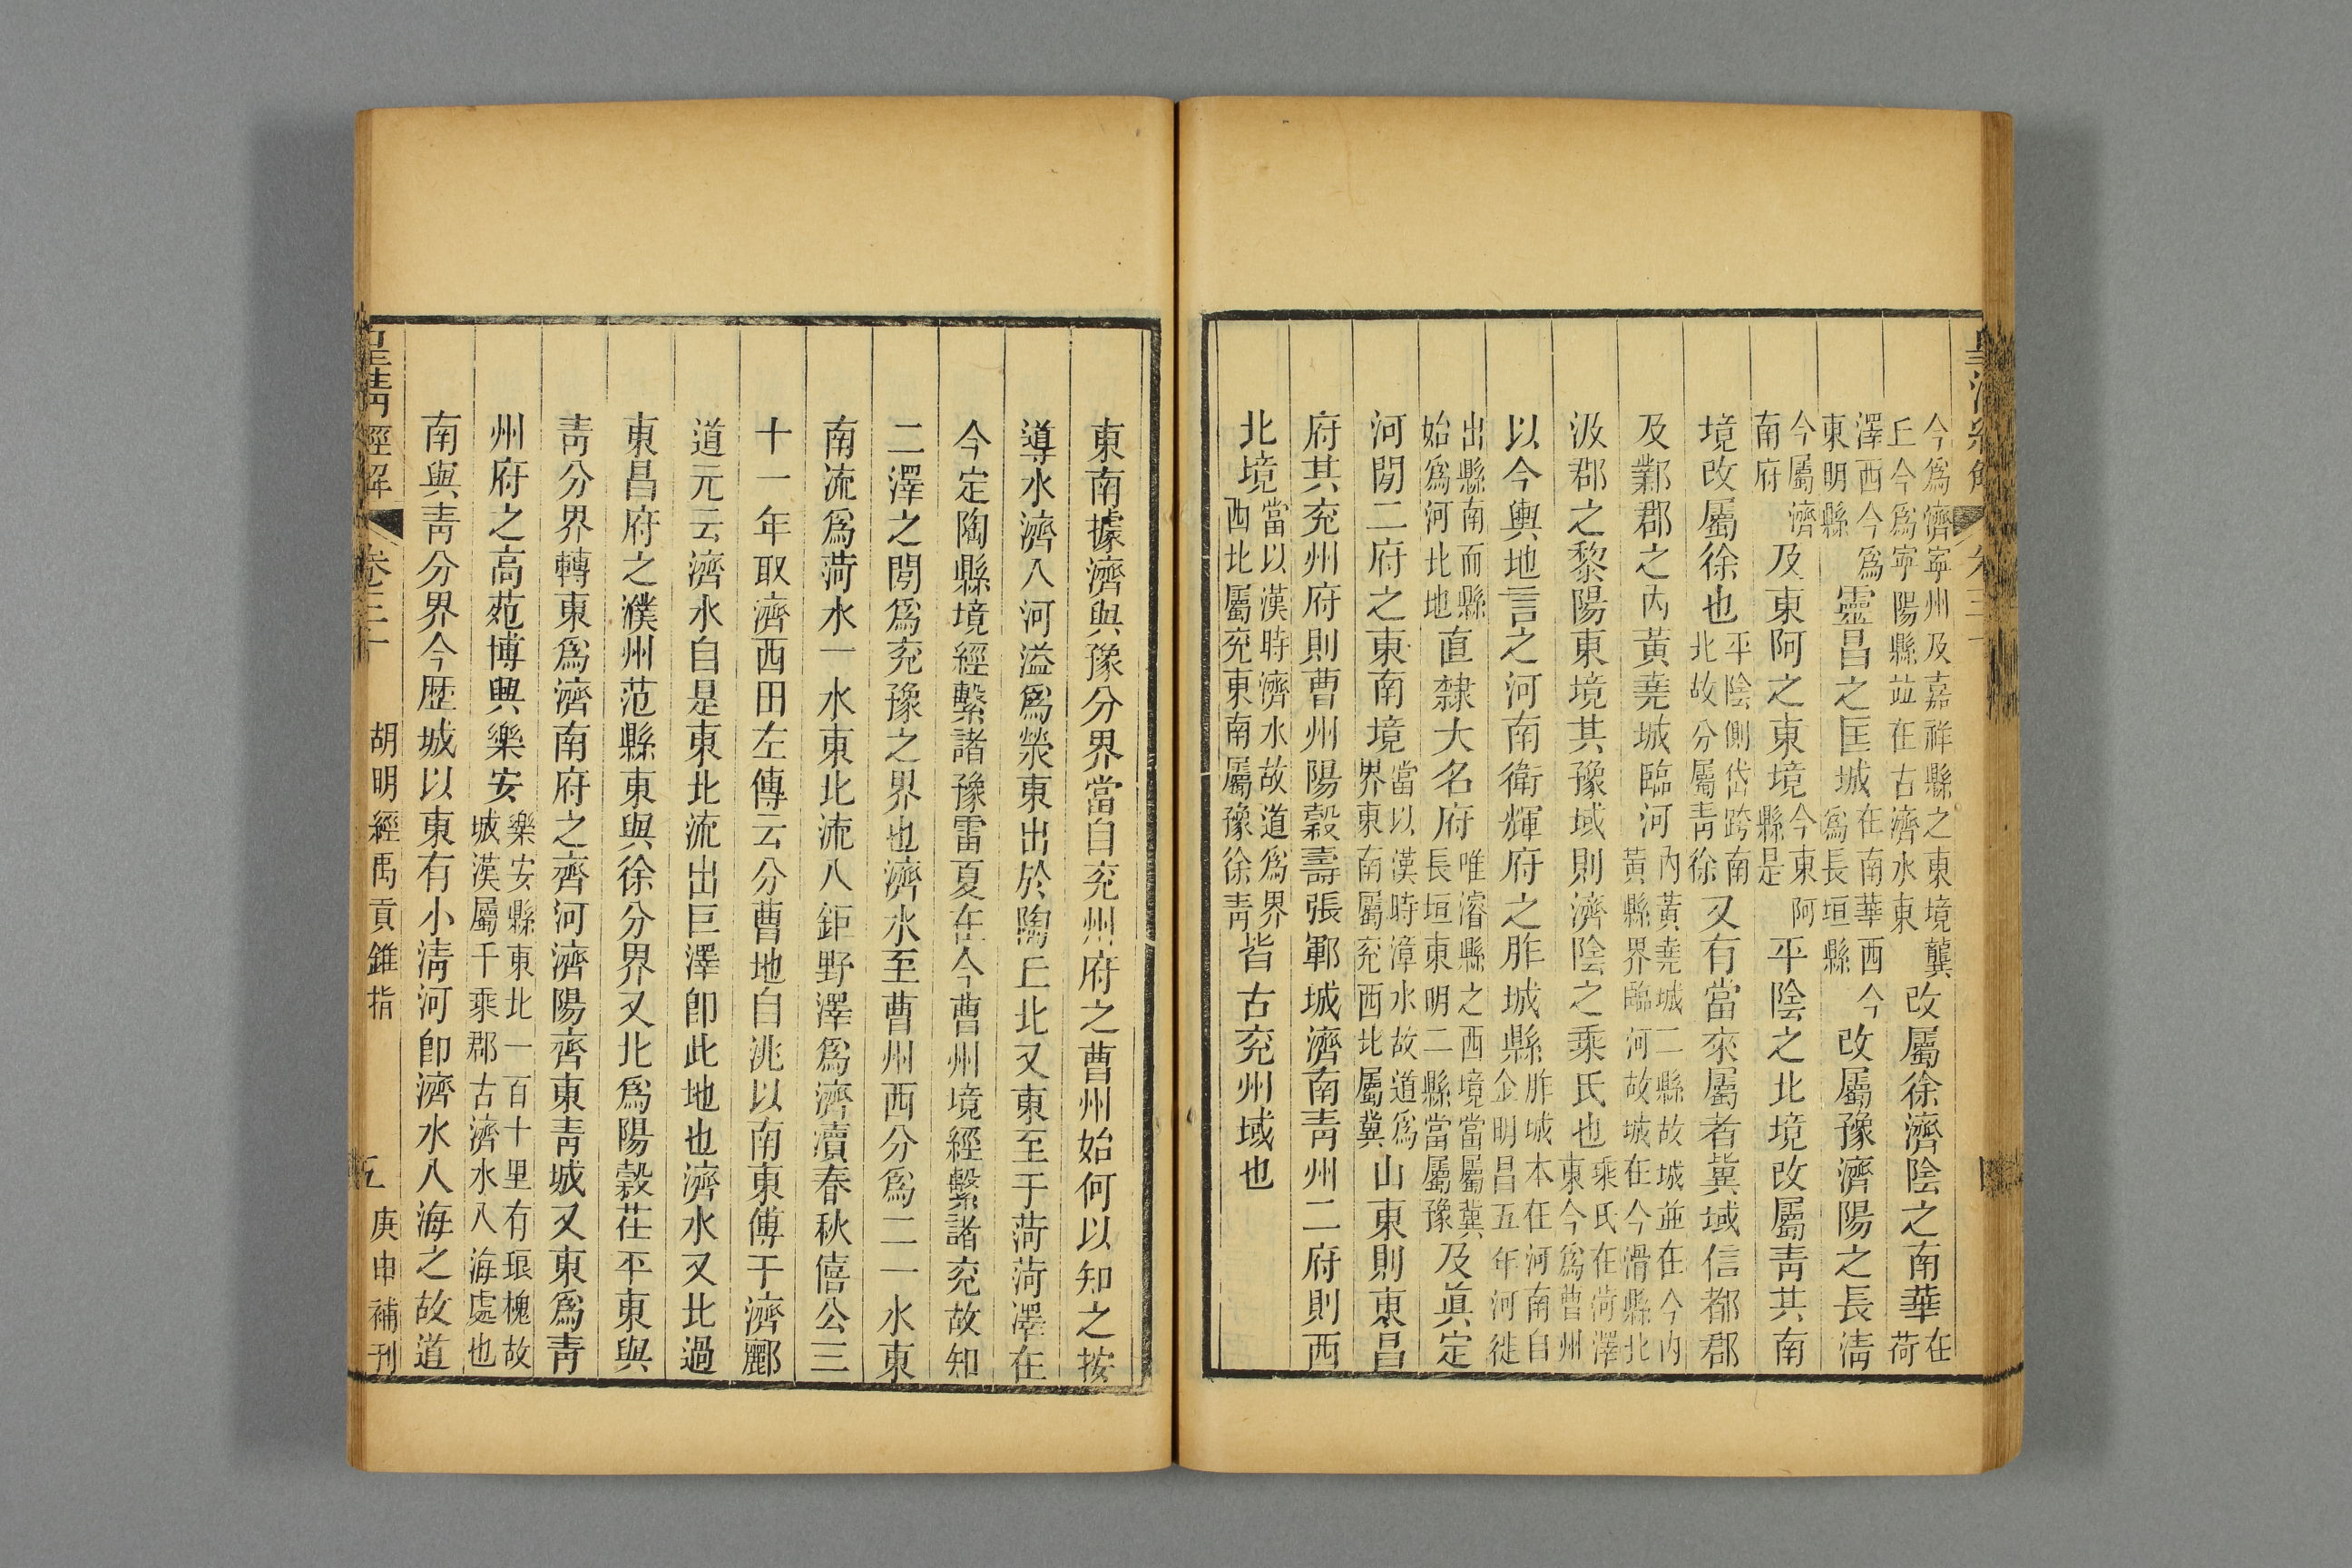 今爲濟寧州及嘉祥縣之東境龔丘今爲寧陽縣竝在古濟水東改屬徐濟陰之南華在荷
澤西今爲東明縣靈昌之匡城在南華西今爲長垣縣改屬豫濟陽之長淸
今屬濟南府及東阿之東境今東阿縣是平陰之北境改屬靑其南
境改屬徐也平陰側岱跨南北故分屬靑徐又有當來屬者冀域信都郡
及鄴郡之內黃堯城臨河內黃堯城二縣故城並在今內黃縣界臨河故城在今滑縣北
汲郡之黎陽東境其豫域則濟陰之乘氏也乘氏在菏澤東今爲曹州
以今輿地言之河南衛輝府之胙城縣胙城本在河南自金明昌五年河徙
出縣南而縣始爲河北地直隸大名府唯濬縣之西境當屬冀長垣東明二縣當屬豫及眞定
河閒二府之東南境當以漢時漳水故道爲界東南屬兗西北屬冀山東則東昌
府其兗州府則曹州陽穀壽張鄆城濟南靑州二府則西
北境當以漢時濟水故道爲界西北屬兗東南屬豫徐靑皆古兗州域也
東南據濟與豫分界當自兗州府之曹州始何以知之按
導水濟入河溢爲滎東出於陶丘北又東至于菏菏澤在
今定陶縣境經繫諸豫雷夏在今曹州境經繫諸兗故知
二澤之閒爲兗豫之界也濟水至曹州西分爲二一水東
南流爲菏水一水東北流入鉅野澤爲濟瀆春秋僖公三
十一年取濟西田左傳云分曹地自洮以南東傅于濟酈
道元云濟水自是東北流出巨澤卽此地也濟水又北過
東昌府之濮州范縣東與徐分界又北爲陽穀茌平東與
靑分界轉東爲濟南府之齊河濟陽齊東靑城又東爲靑
州府之高苑博興樂安樂安縣東北一百十里有琅槐故城漢屬千乘郡古濟水入海處也
南與靑分界今歷城以東有小淸河卽濟水入海之故道
皇淸經解 卷三十 五
胡明經禹貢錐指 庚申補刊